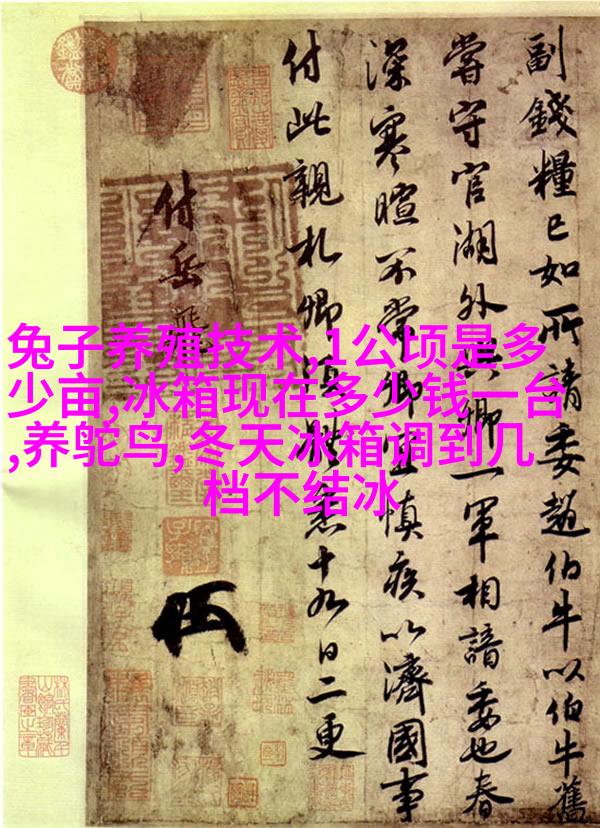 兔子养殖技术,1公顷是多
少亩,冰箱现在多少钱一台
,养鸵鸟,冬天冰箱调到几
档不结冰
副錢糧已如所請委趙伯牛以伯牛舊
嘗守官湖外與卿一軍相諳委也春
深寒暄不常卿宜慎疾以濟國事
付此親札卿須體悉十九日二更
付岳飛